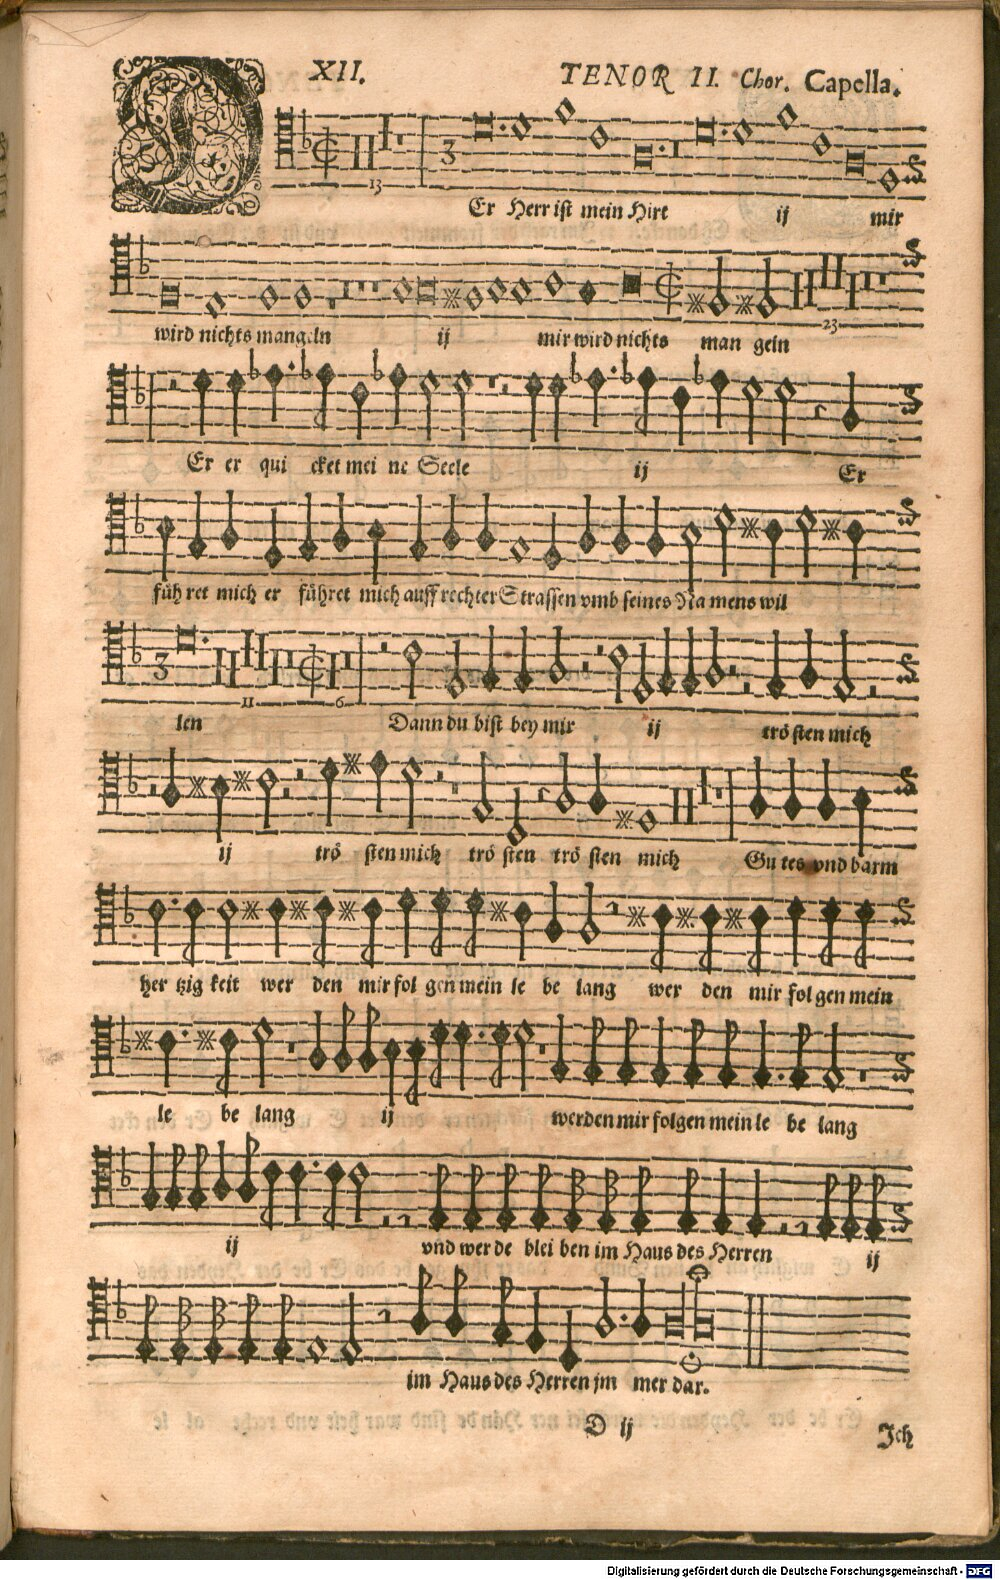 XII. TENOR II. Chor. Capella.
3
13
DEr Herr ist mein Hirt ij mir
wird nichts mangeln ij mir wird nichts man geln
23
Er er qui cket mei ne Seele ij Er
füh ret mich er führet mich auff rechter Strassen vmb seines Na mens wil
3 11 6
len Dann du bist bey mir ij trö sten mich
ij trö sten mich trö sten trö sten mich Gu tes vnd barm
her tzig keit wer den mir fol gen mein le be lang wer den mir fol gen mein
le be lang ij werden mir folgen mein le be lang
ij vnd wer de blei ben im Haus des Herren ij
im Haus des Herren jm mer dar.
D ij
Jch
Digitalisierung gefördert durch die Deutsche Forschungsgemeinschaft - DFG